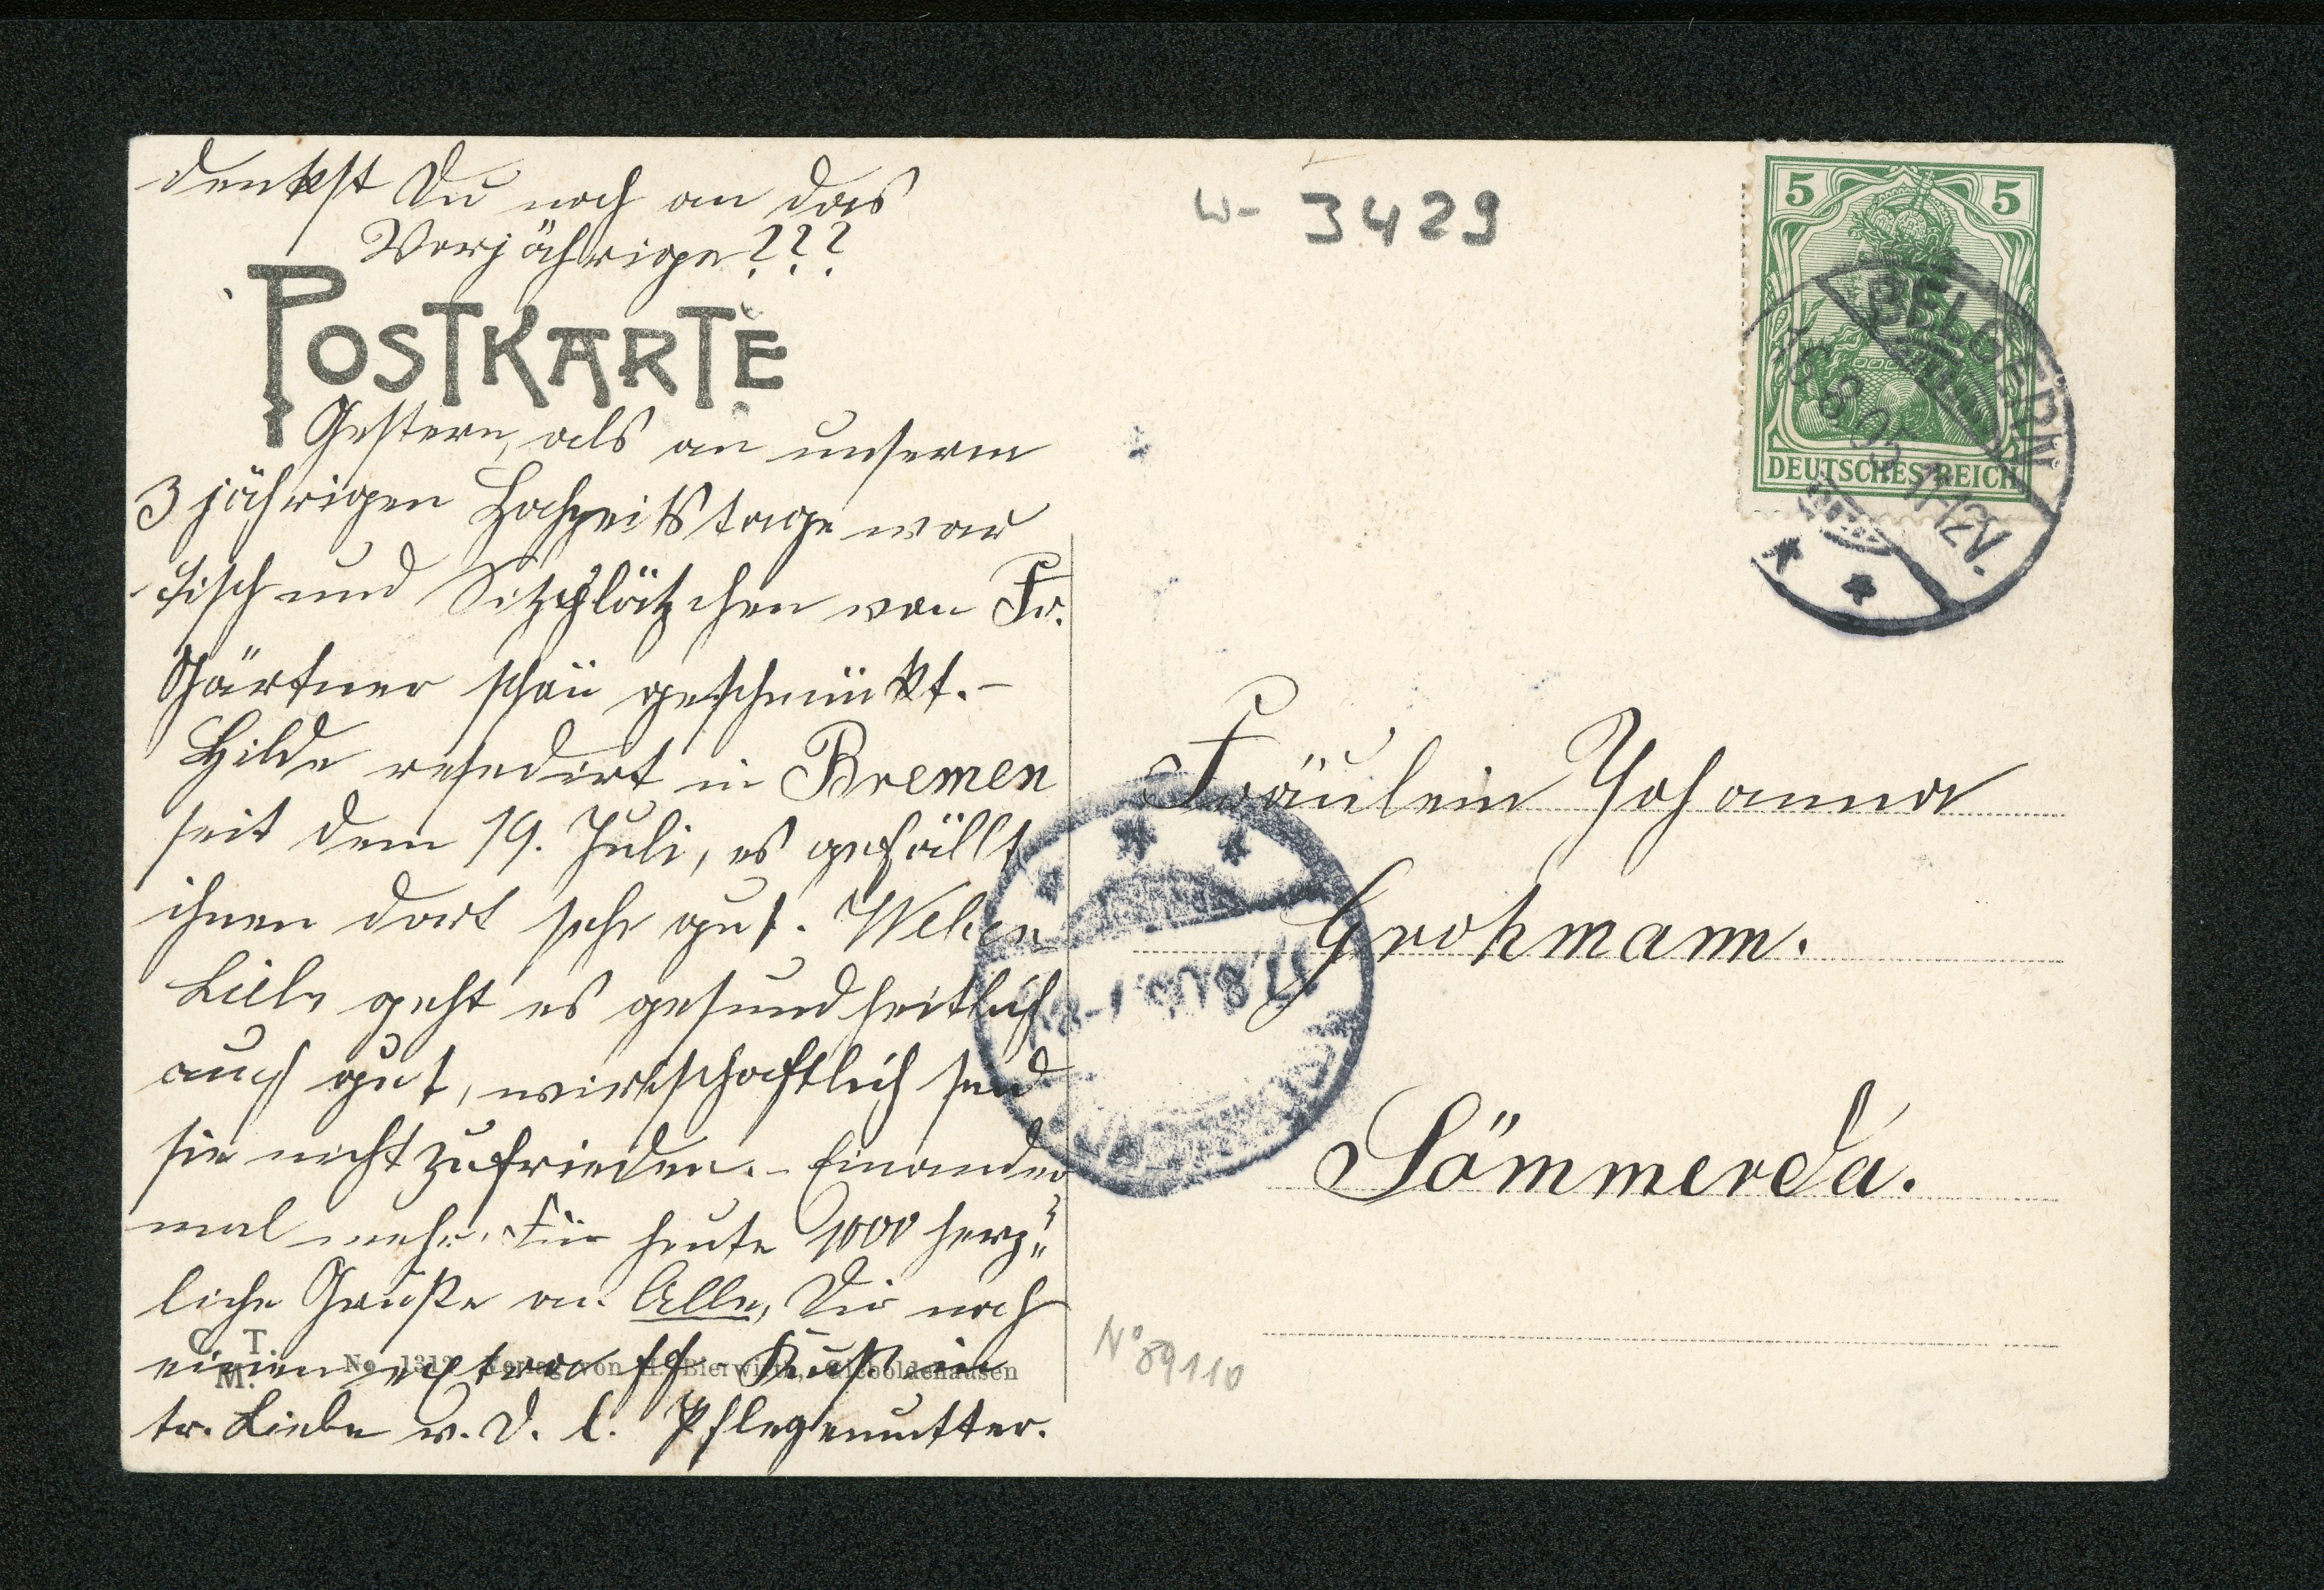 denkst Du noch an das
Vorjährige???
POSTKARTE
Gestern, als an unserm
3 jährigen Hochzeitstage war
Tisch und Sitzplätzchen von Fr.
Gärtner schön geschmückt.-
Hilde residirt in Bremen
seit dem 19. Juli, es gefällt
ihnen dort sehr gut.
geht es gesundheitlich
auch gut, wirtschaftlich sind
sie nicht zufrieden. - Einander
mal mehr. Für heute 1000 herz-
liche Grüße an Alle, Dir noch
einen extra ff. Kuß in
tr. Liebe v. D. l. Pflegemutter.
C. T.
M.
No 1312 Verlag von H. Bierwirth, Gieboldehausen
W- 3429
5 5
DEUTSCHES REICH
BELGERN
16.8.05 11-12V.
Fräulein Johanna
Grohmann.
Sömmerda.
17.8.05
No 89110